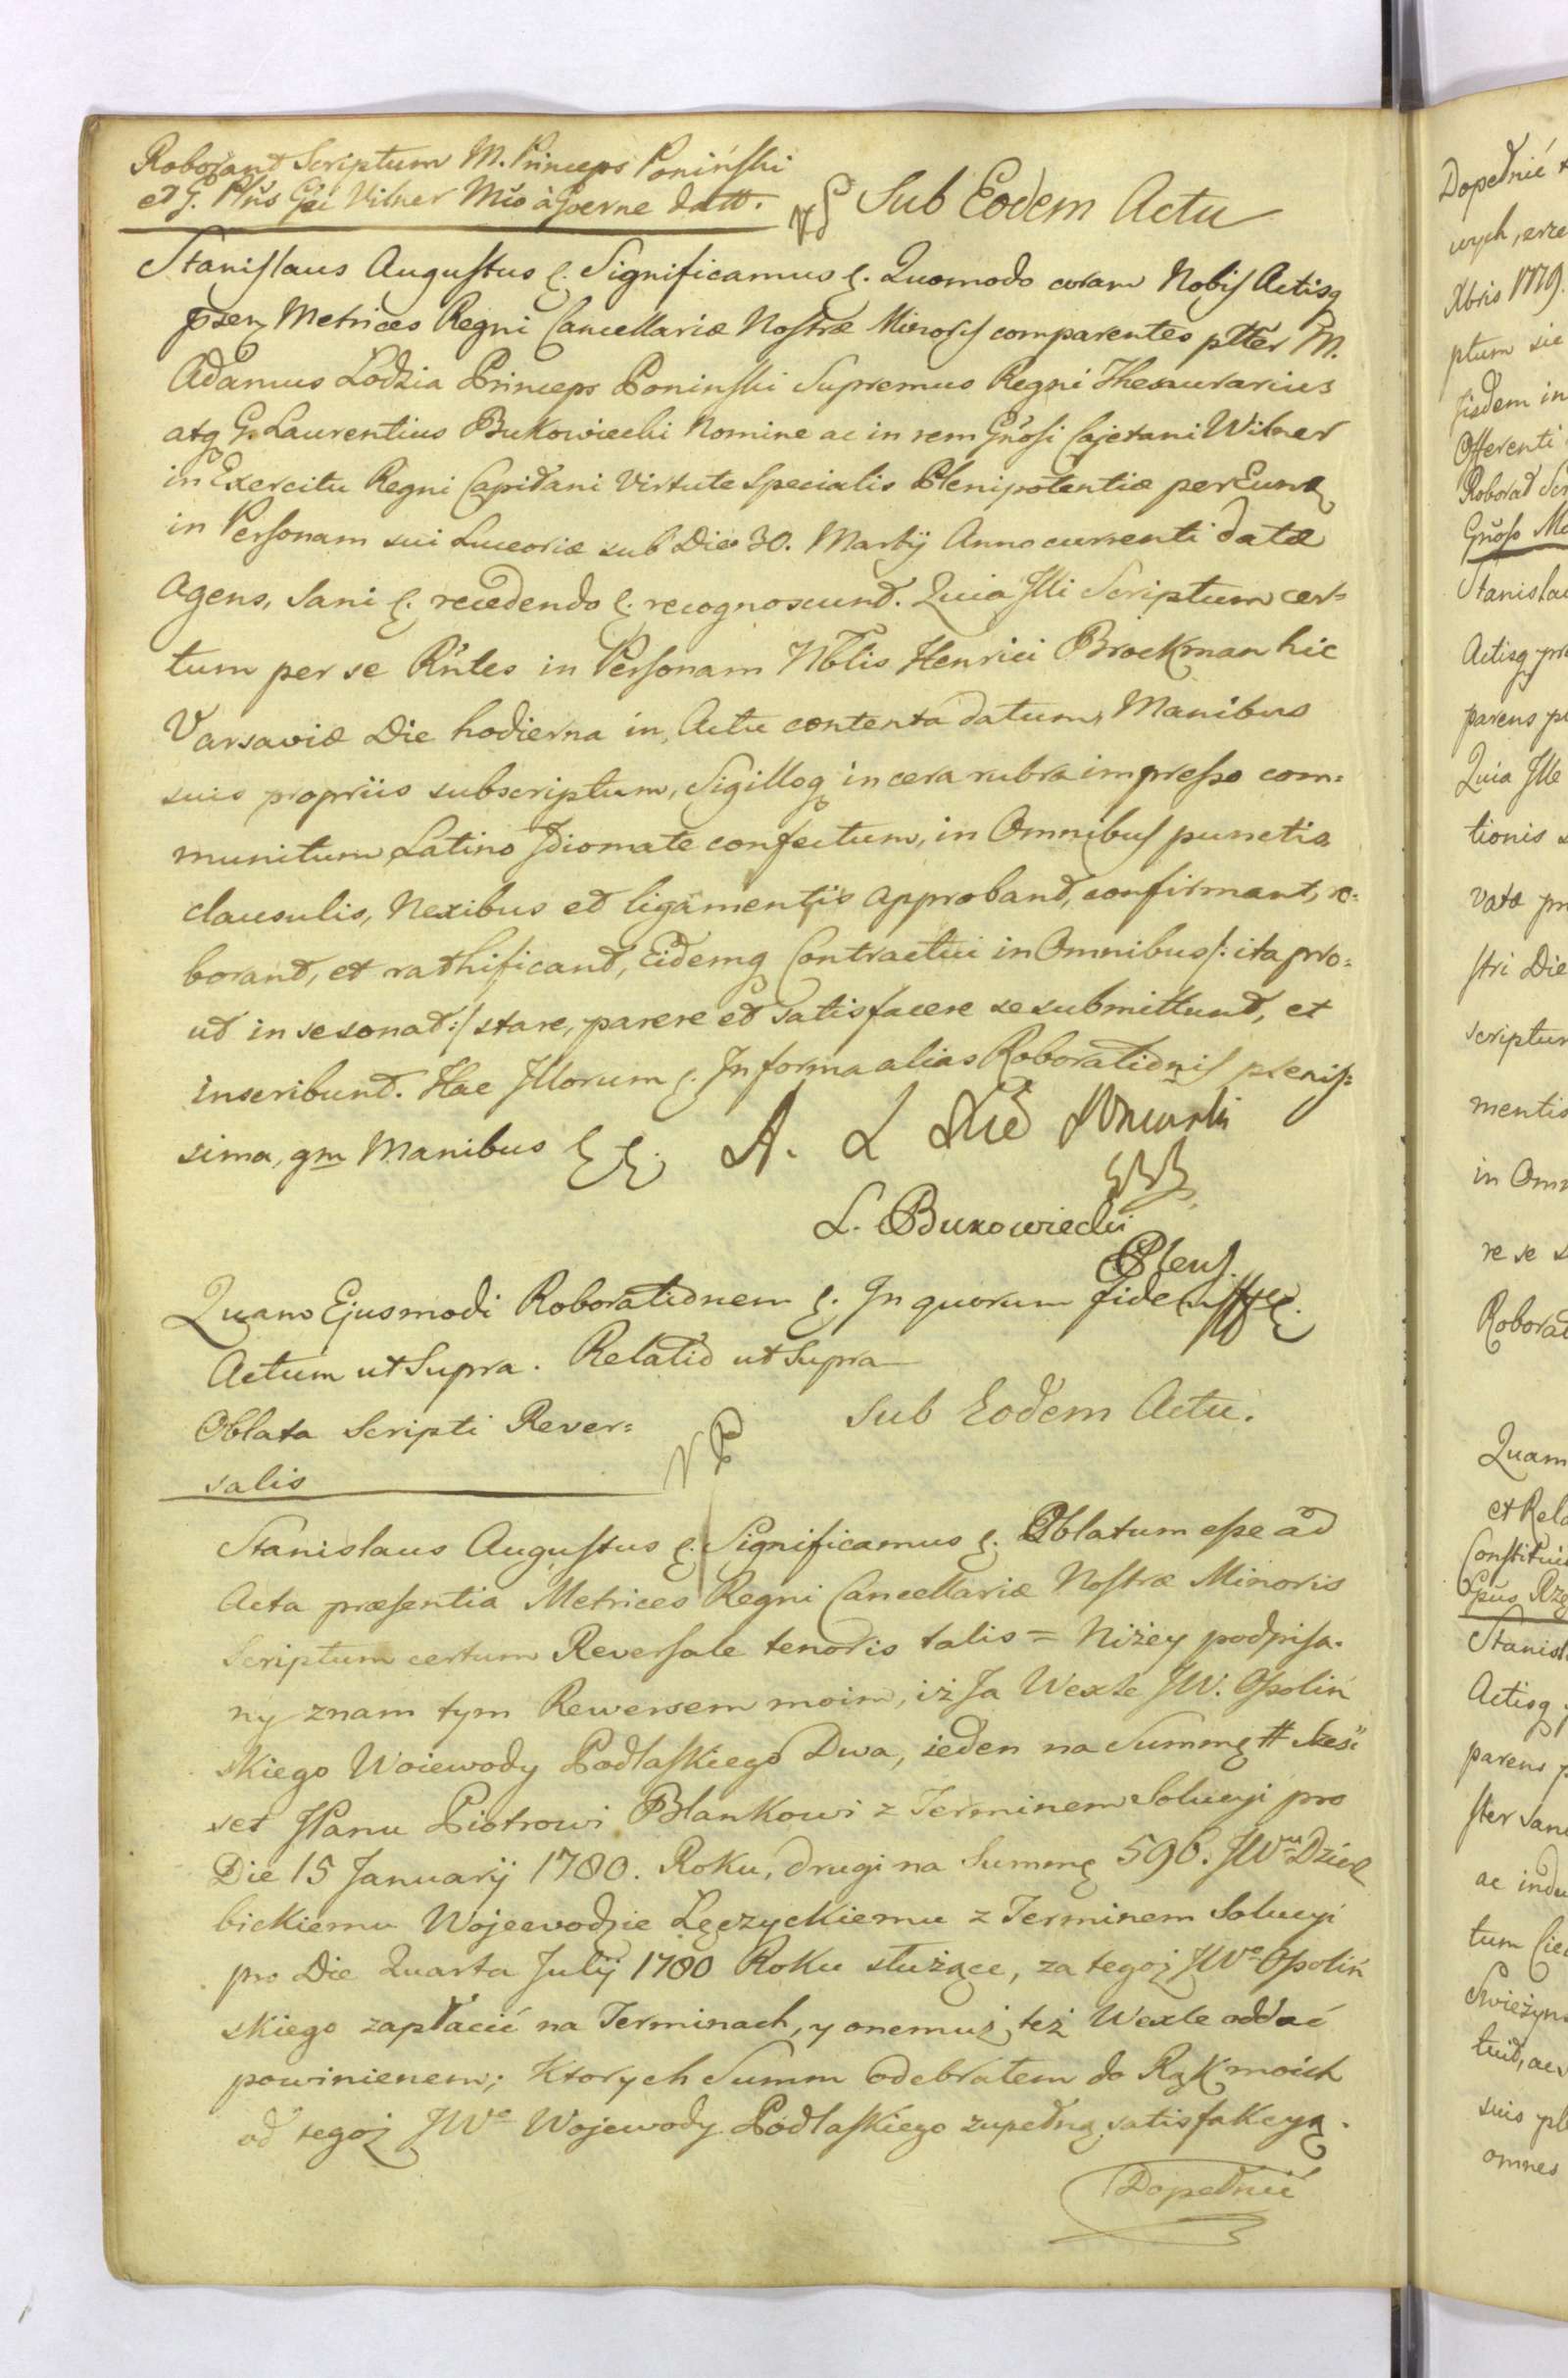 Roborant Scriptum M. Princeps Poniński
et G. Plńs Gsi Vilner
Sub Eodem Actu
Stanislaus Augustus &. Significamus &. Quomodo coram Nobis Actisq
pszen Metrices Regni Cancellariæ Nostræ Minoris comparentes pltter M.
Adamus Lodzia Princeps Poninski Supremus Regni Thesaurarius
atq G. Laurentius Bukowiecki Nomine ac in rem Gńosi Cajetani Wilner
in Exercitu Regni Capitani Virtute Specialis Plenipotentiæ per Eund
in Personam sui Luceoriæ sub Die 30. Martij Anno currenti datæ
Agens, Sani &. recedendo &. recognoscunt. Quia Illi Scriptum cer=
tum per se Rńtes in Personam Nblis Henrici Brockman hic
Varsaviæ Die hodierna in Actu contenta datum, Manibus
suis propriis subscriptum, Sigilloq in cera rubra impresso com=
munitum Latino Idiomate confectum, in Omnibus punctis
clausulis, Nexibus et ligamentis approbant, confirmant, ro=
borant, et rathificant, Eidemq Contractui in Omnibus /: ita pro=
ut in se sonat :/ stare, parere et Satisfacere se submittunt, et
inscribunt. Hac Illorum &. In forma alias Roborationis plenis=
sima, qm Manibus &&. A. L Xże Poninski
L. Bukowiecki
Plens.
Quam Ejusmodi Roborationem &. In quorum fidem &.
Actum ut Supra. Relatio ut Supra
Oblata Scripti Rever=
salis
Sub Eodem Actu.
Stanislaus Augustus &. Significamus &. Oblatum esse ad
Acta præsentia Metrices Regni Cancellariæ Nostræ Minoris
Scriptum certum Reversale tenoris talis = Niżey podpisa=
ny znam tym Rewersem moim, iż Ja Wexle JW. Ossoliń
skiego Woiewody Podlaskiego Dwa, ieden na Summę # szesc
set JPanu Piotrowi Blankowi z Terminem Solucyi pro
Die 15 Januarij 1780. Roku, drugi na Summę 596. JWmu Dzierz
bickiemu Wojeewodzie Łęczyckiemu z Terminem Solucyi
pro Die Quarta Julij 1780 Roku służące, za tegoż JWo Ossoliń
skiego zapłacić na Terminach, y onemuż też Wexle oddać
powinienem; Ktorych Summ odebrałem do Rąk moich
od tegoż JWo Wojewody Podlaskiego zupełną satisfakcyą.
Dopełnić
Dopełnić
Xbris 1779.
ptum sie
Jisdem in
Offerenti
Roborat
Gńoso
Actisq
parens
Quia Ille
tionis
vatæ
stri Die
scriptum
mentis
in Omn
re se
Roborat
Quam
et Rela
Actisq
parens
ster
ac
tum
suis
omnes